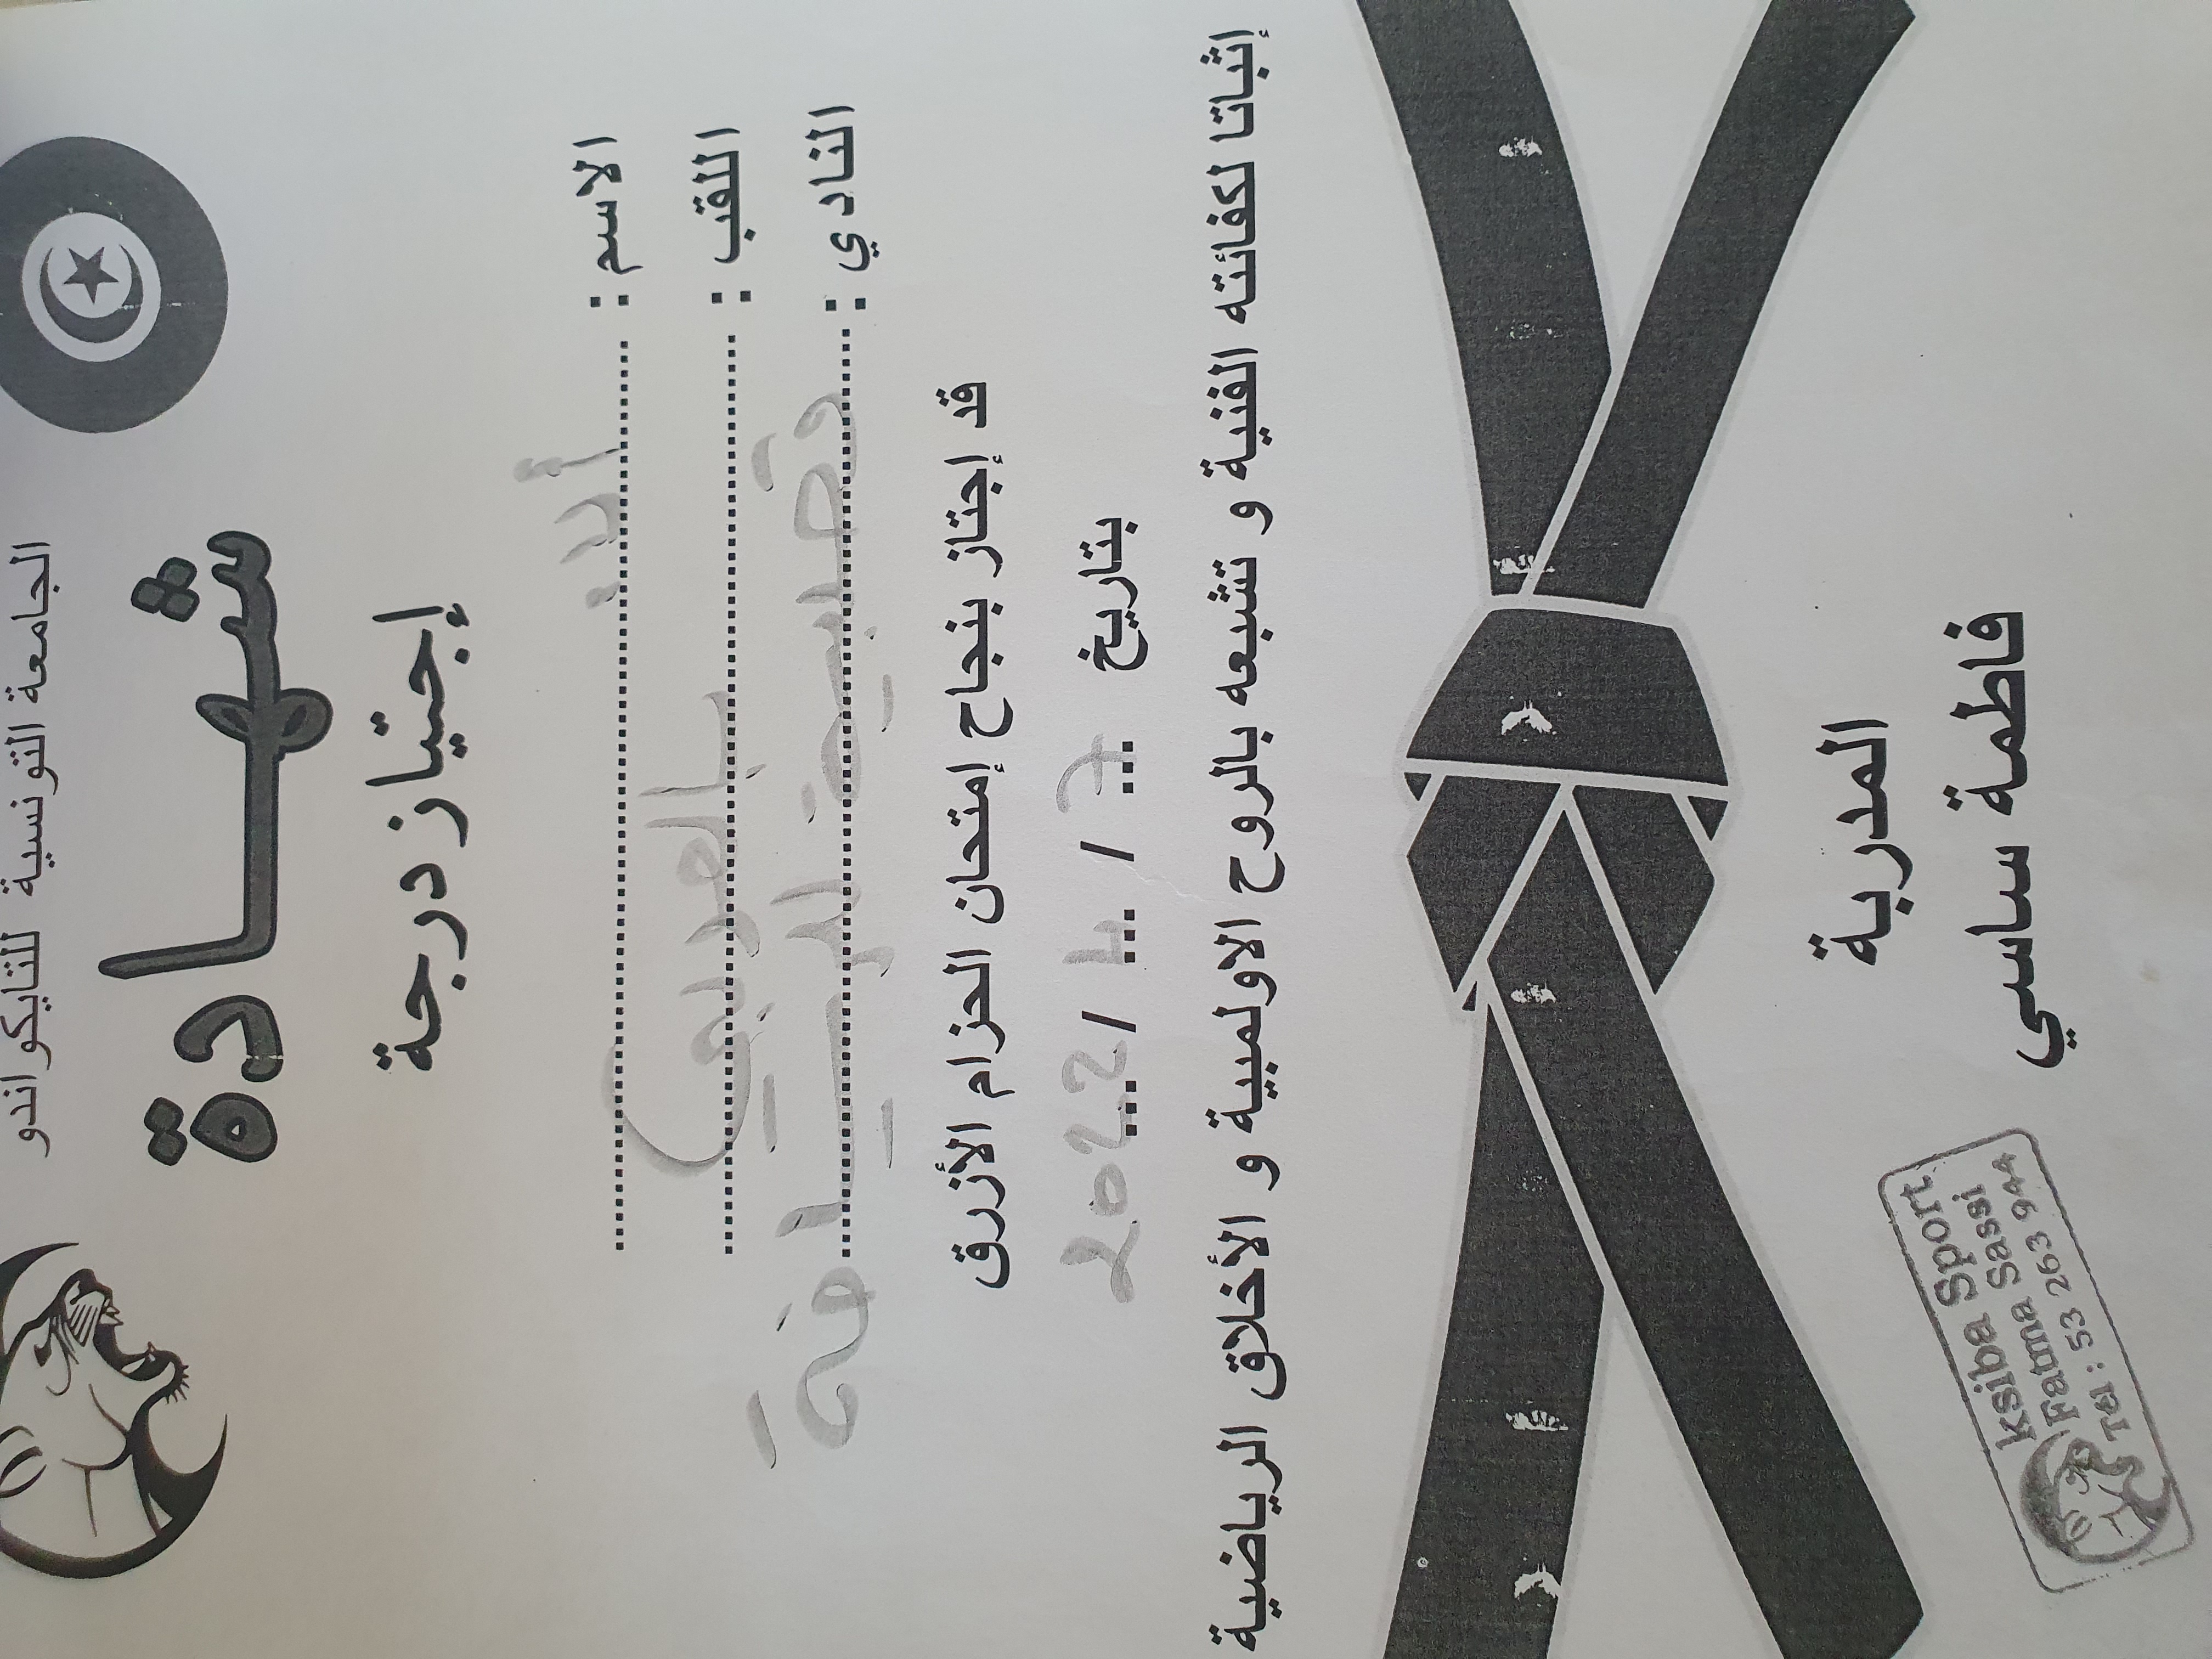 الجامعة التونسية للتايكواندو
شهادة
إجتياز درجة
الاسم : ألاء
اللقب : بالعربي
النادي : قصيبة الرياضة
قد إجتاز بنجاح إمتحان الحزام الأزرق
بتاريخ 7 / 4 / 2022
إثباتا لكفائته الفنية و تشبعه بالروح الاولمبية و الأخلاق الرياضية
المدربة
فاطمة ساسي
Ksiba Sport
Fatma Sassi
Tel : 53 263 944